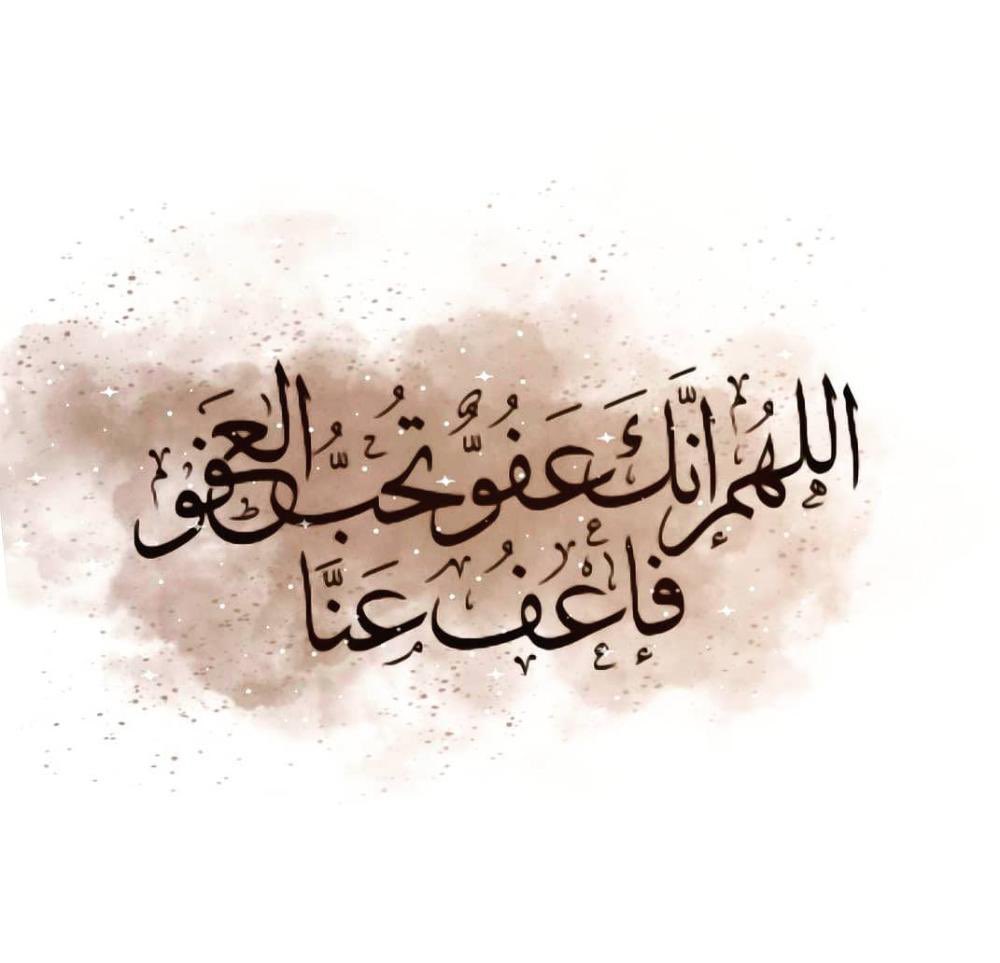 اللهُمَّ إنَّكَ عَفُوٌّ تُحِبُّ العَفْوَ
فَاعْفُ عَنَّا